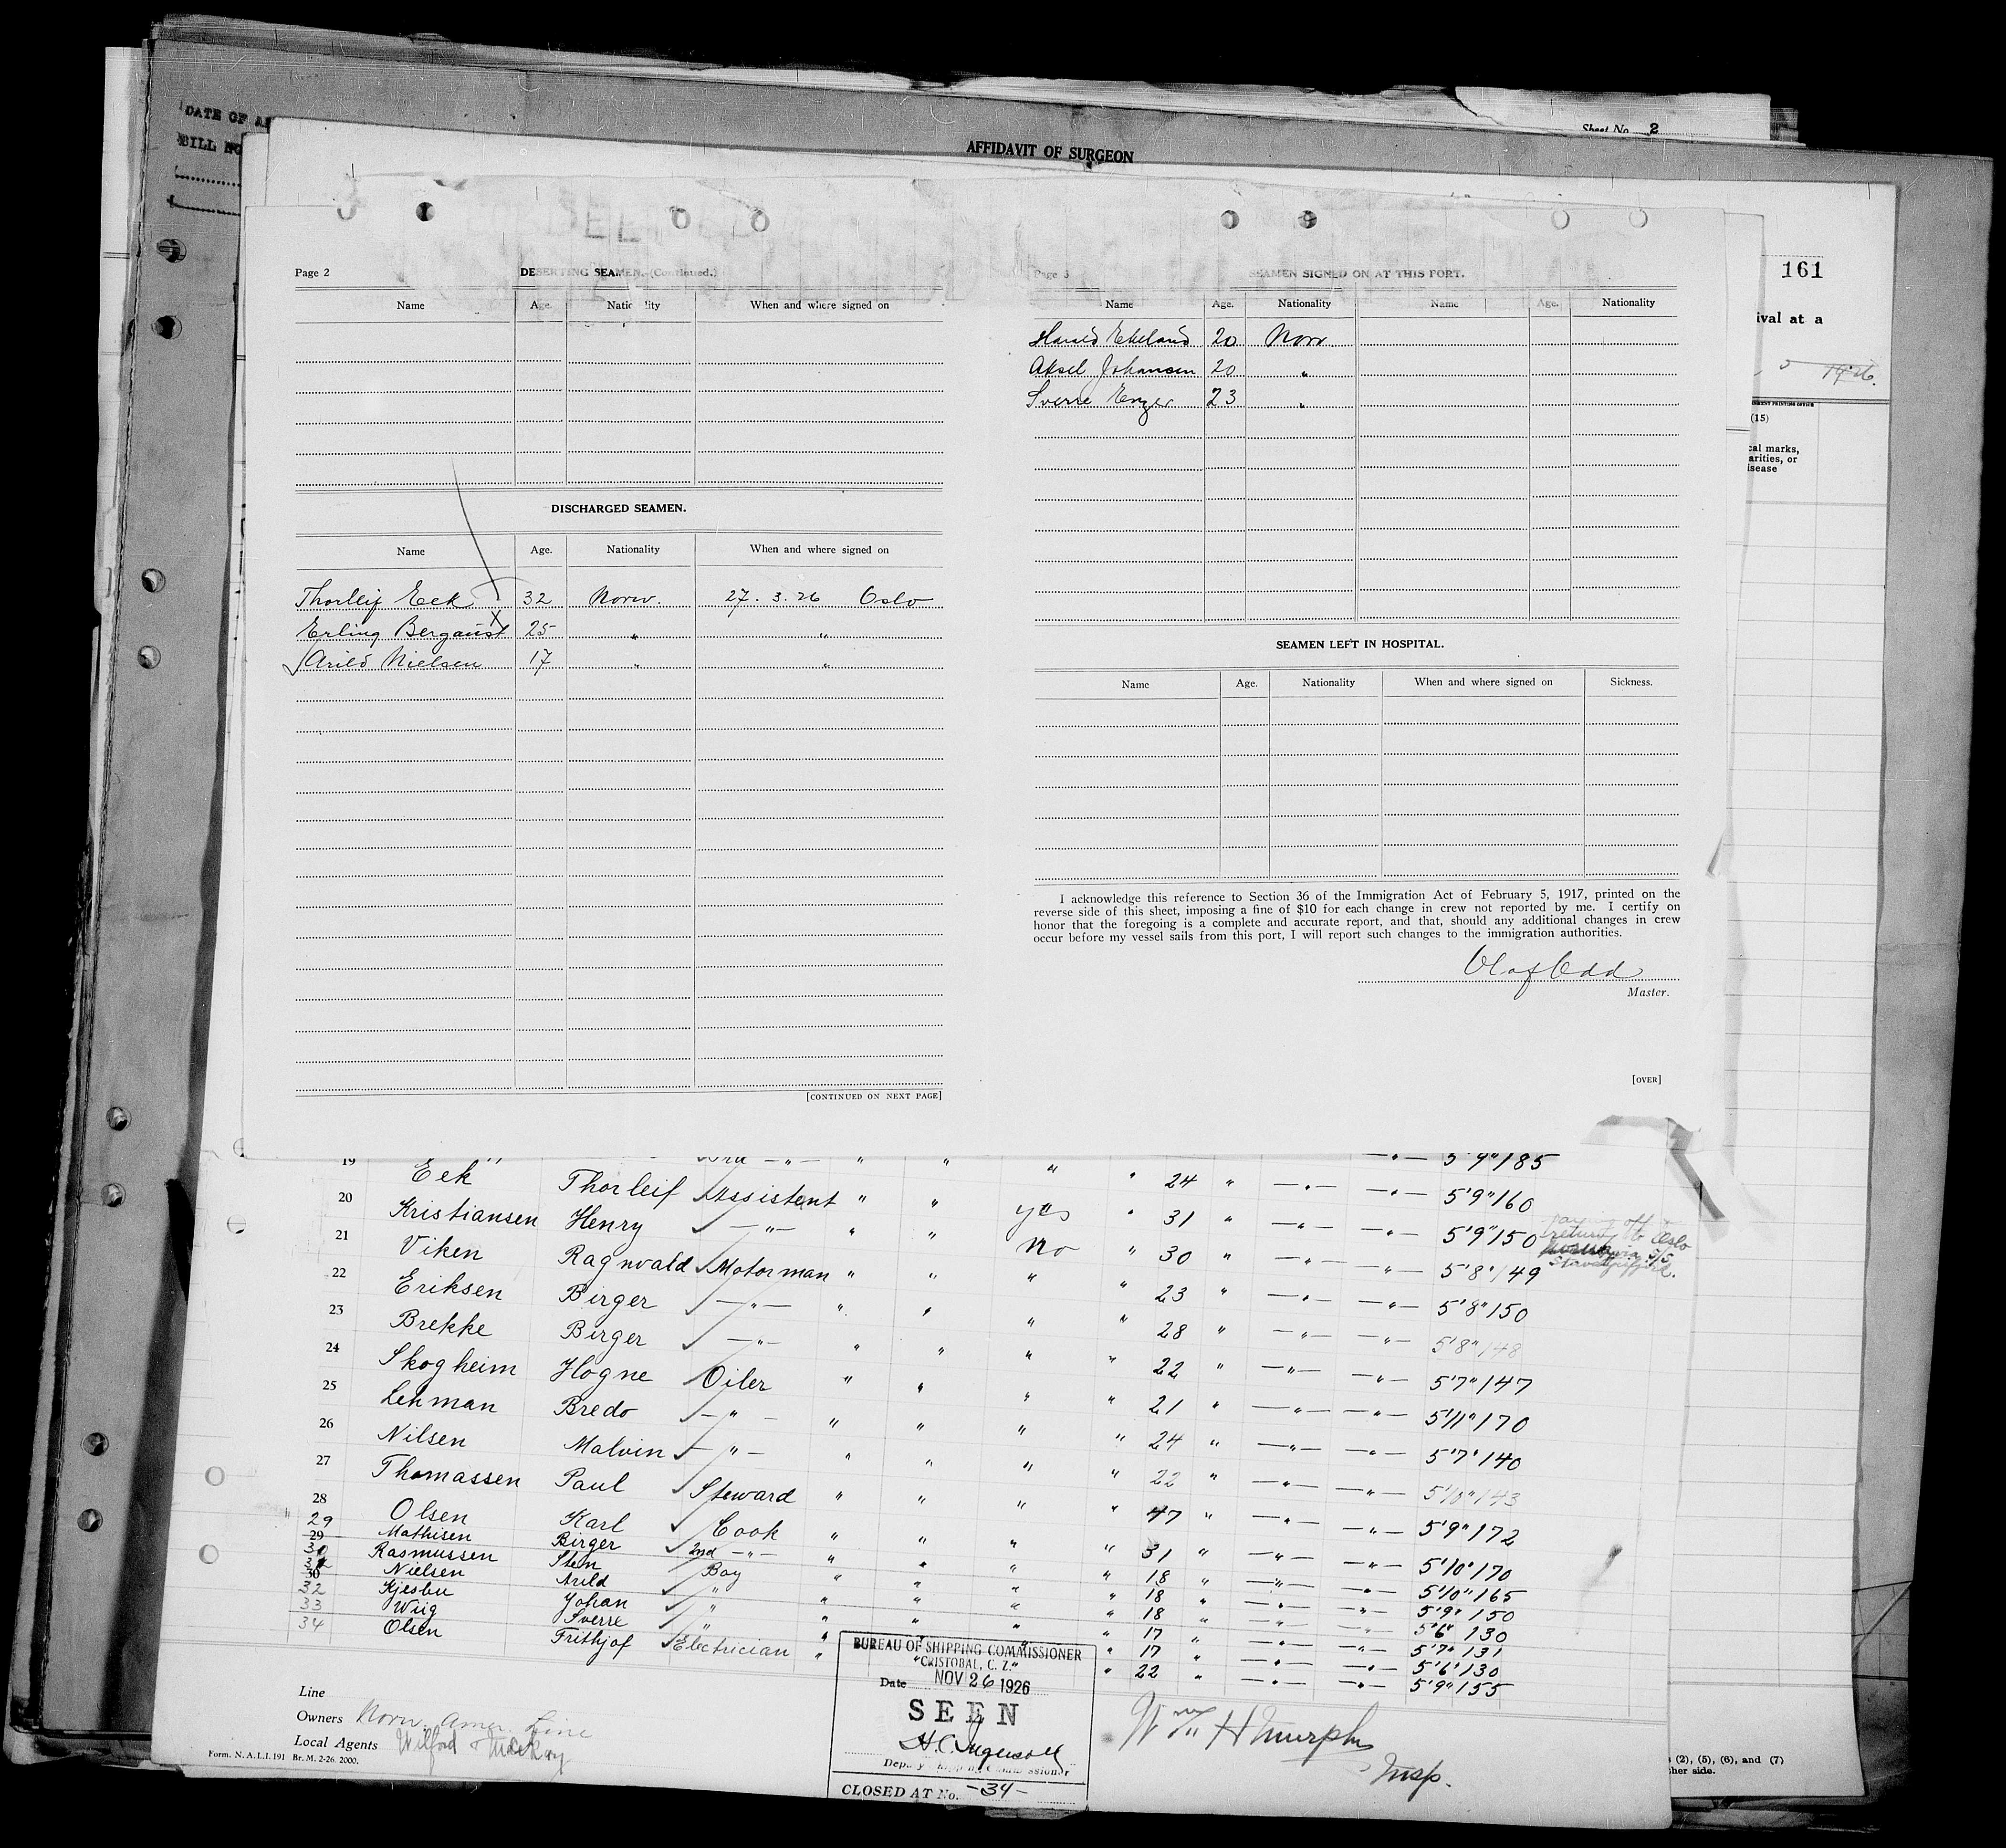 DATE OF
BILL NO
Sheet No. 2
AFFIDAVIT OF SURGEON
161
ival at a
1926.
(15)
cal marks,
arities, or
isease
Page 2
DESERTING SEAMEN. (Continued.)
Name Age. Nationality When and where signed on
DISCHARGED SEAMEN.
Name Age. Nationality When and where signed on
Thorleif Eek 32 Norw. 27. 3. 26 Oslo
Erling Bergaust X 25 " "
√ Arild Nielsen 17 " "
[CONTINUED ON NEXT PAGE]
Page 3
SEAMEN SIGNED ON AT THIS PORT.
Name Age. Nationality Name Age. Nationality
Harald Ekeland 20 Norw.
Aksel Johansen 20 "
Sverre Enger 23 "
SEAMEN LEFT IN HOSPITAL.
Name Age. Nationality When and where signed on Sickness.
I acknowledge this reference to Section 36 of the Immigration Act of February 5, 1917, printed on the
reverse side of this sheet, imposing a fine of $10 for each change in crew not reported by me. I certify on
honor that the foregoing is a complete and accurate report, and that, should any additional changes in crew
occur before my vessel sails from this port, I will report such changes to the immigration authorities.
Olaf Odd
Master.
[OVER]
19 " " " " — " — 5'9" 185
Eek Thorleif √ Assistent " " " " 24 " — " — — " — 5'9" 160
20 Kristiansen Henry √ — " — " " yes " 31 " — " — — " — 5'9" 150
off
return to Oslo
via S/S
Stavangerfjord.
21 Viken Ragnvald √ Motorman " " No " 30 " — " — — " — 5'8" 149
22 Eriksen Birger √ — " — " " " " 23 " — " — — " — 5'8" 150
23 Brekke Birger √ — " — " " " " 28 " — " — — " — 5'8" 148
24 Skogheim Hogne √ Oiler " " " " 22 " — " — — " — 5'7" 147
25 Lehman Bredo √ — " — " " " " 21 " — " — — " — 5'11" 170
26 Nilsen Malvin √ — " — " " " " 24 " — " — — " — 5'7" 140
27 Thomassen Paul √ Steward " " " " 22 " — " — — " — 5'10" 143
28 Olsen Karl √ Cook " " " " 47 " — " — — " — 5'9" 172
29 Mathisen Birger √ 2nd — " — " " " " 31 " — " — — " — 5'10" 170
29 30 Rasmussen Sten √ Boy " " " " 18 " — " — — " — 5'10" 165
30 Nielsen Arild √ " " " " " 18 " — " — — " — 5'9" 150
32 Kjesbu Johan √ " " " " " 18 " — " — — " — 5'6" 130
33 Wiig Sverre √ " " " " " 17 " — " — — " — 5'7" 131
17 " — " — — " — 5'6" 130
34 Olsen Frithjof √ Electrician " " 22 " — " — — " — 5'9" 155
Line
Owners Norw. Amer. Line
Local Agents Wilford & McKay
Form. N. A. L. I. 191 Br. M. 2-26. 2000.
BUREAU OF SHIPPING COMMISSIONER
"CRISTOBAL, C. Z."
Date NOV 26 1926
SEEN
H. C. Ingersoll
Deputy Shipping Commissioner
CLOSED AT No. -34-
Wm H Murphy
Insp.
(2), (5), (6), and (7)
her side.